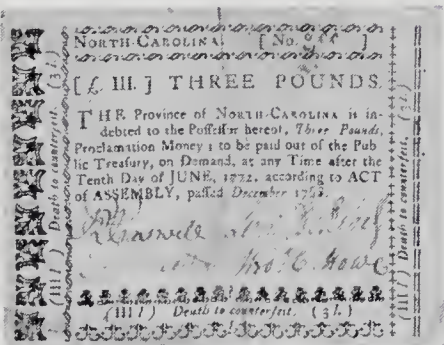 NORTH-CAROLINA [No. ]
[£ III.] THREE POUNDS.
THE Province of NORTH-CAROLINA is in-
debted to the Possessor hereof, Three Pounds,
Proclamation Money; to be paid out of the Pub
lic Treasury, on Demand, at any Time after the
Tenth Day of JUNE, 1772, according to ACT
of ASSEMBLY, passed December 1768.
Thos. C. Howe
(III l) Death to counterfeit. (3 l.)
(III l) Death to counterfeit. (3 l.)
(III l) Death to counterfeit. (3 l.)